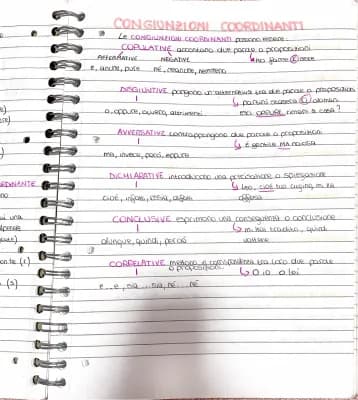 CONGIUNZIONI COORDINANTI
Le CONGIUNZIONI COORDINANTI possono essere:
COPULATIVE accostano due parole o proposizioni
AFFERMATIVE NEGATIVE Ho fame E sete
e, anche, pure né, neanche, nemmeno
DISGIUNTIVE pongono un'alternativa tra due parole o proposizioni
O domani
o, oppure, ovvero, altrimenti OPPURE rimani a casa?
AVVERSATIVE contrappongono due parole o proposizioni
È gentile MA
ma, invece, però, eppure
DICHIARATIVE introducono una precisazione o spiegazione
Leo, cioè tuo cugino, mi ha
cioè, infatti, ossia, difatti offeso
CONCLUSIVE esprimono una conseguenza o conclusione
m. ha tradito, quindi
dunque, quindi, perciò
CORRELATIVE mettono in corrispondenza tra loro due parole
o proposizioni. O io o lei
e...e, sia...sia, né...né